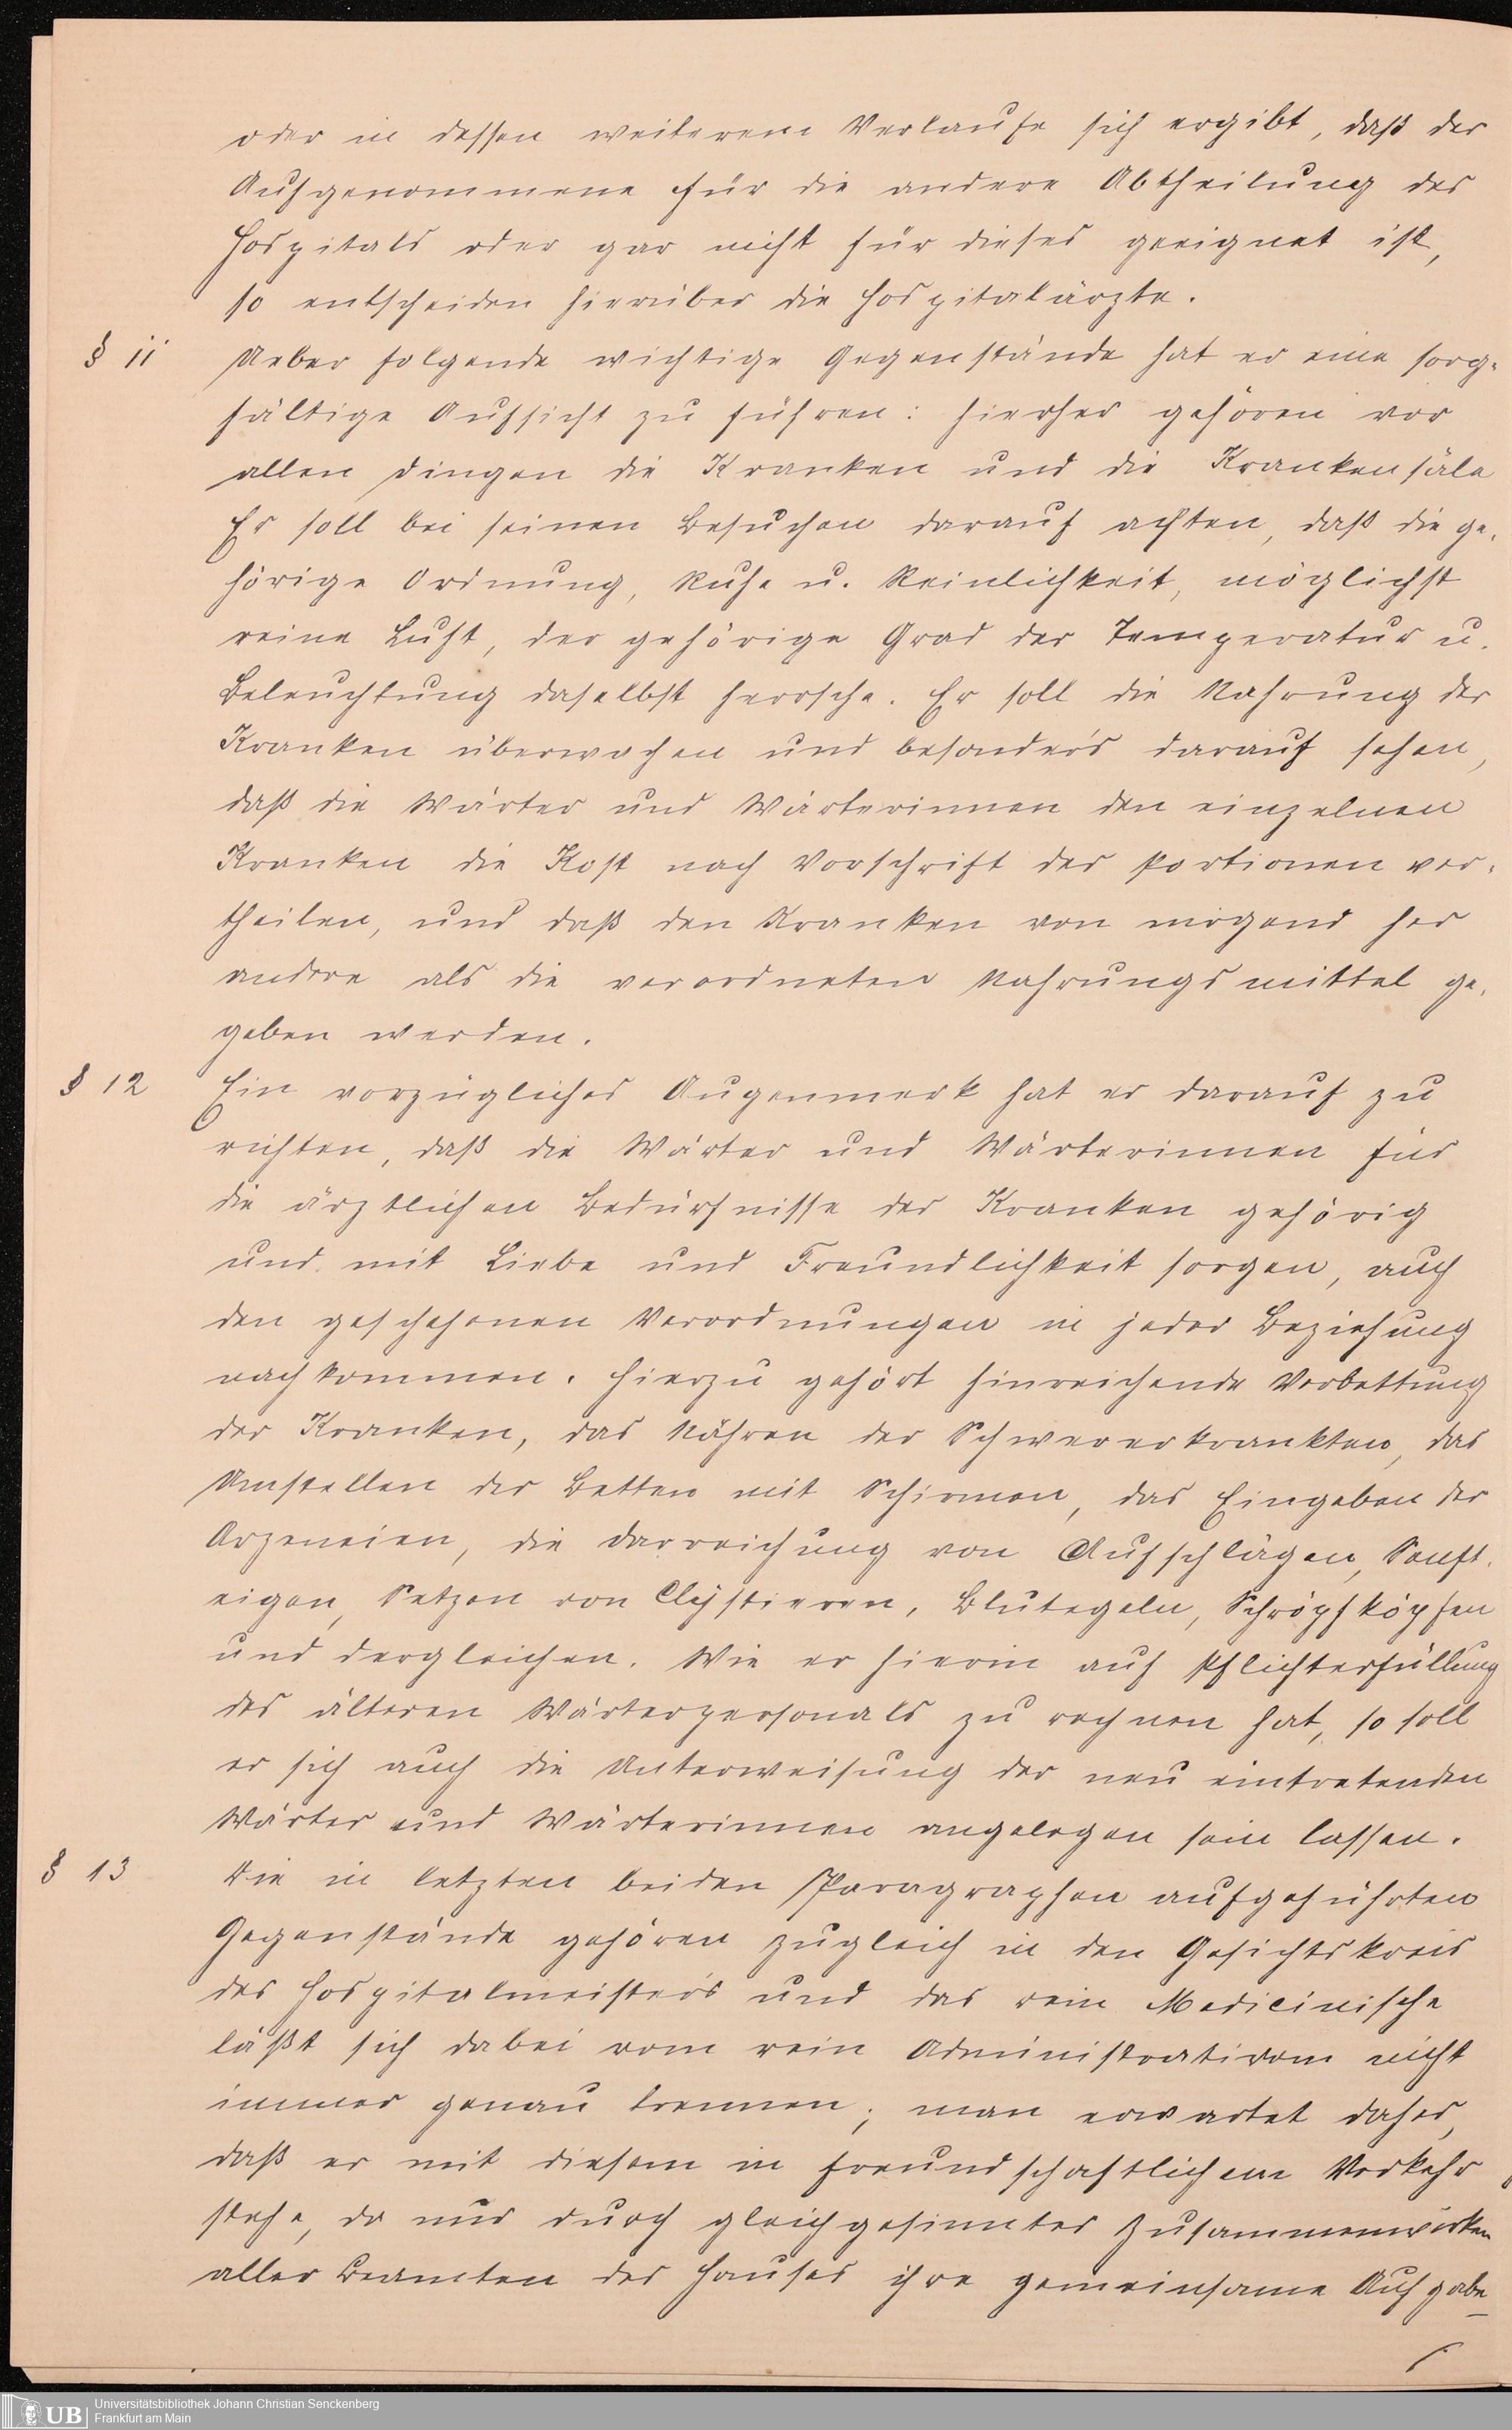 oder in dessen weiterem Verlaufe sich ergibt, daß der
Aufgenommene für die andere Abtheilung des
Hospitals oder gar nicht für dieses geeignet ist,
so entscheiden hierüber die Hospitalärzte.
§ 11 Ueber folgende wichtige Gegenstände hat er eine sorg-
fältige Aufsicht zu führen: hierher gehören vor
allen Dingen die Kranken und die Krankensäle
Er soll bei seinen Besuchen darauf achten, daß die ge-
hörige Ordnung, Ruhe u. Reinlichkeit, möglichst
reine Luft, der gehörige Grad der Temperatur u.
Beleuchtung daselbst herrsche. Er soll die Nahrung der
Kranken überwachen und besonders darauf sehen,
daß die Wärter und Wärterinnen den einzelnen
Kranken die Kost nach Vorschrift der Portionen ver-
theilen, und daß den Kranken von nirgend her
andere als die verordneten Nahrungsmittel ge-
geben werden.
§ 12 Ein vorzügliches Augenmerk hat er darauf zu
richten, daß die Wärter und Wärterinnen für
die ärztlichen Bedürfnisse der Kranken gehörig
und mit Liebe und Freundlichkeit sorgen, auch
den geschehenen Verordnungen in jeder Beziehung
nachkommen. Hierzu gehört hinreichende Verbettung
der Kranken, das Nähren der Schwererkrankten, das
Umstellen der Betten mit Schirmen, das Eingeben der
Arzeneien, die Darreichung von Aufschlägen, Senft-
eigen, Setzen von Clystieren, Blutegeln, Schröpfköpfen
und dergleichen. Wie er hierin auf Pflichterfüllung
des älteren Wärterpersonals zu rechnen hat, so soll
er sich auch die Unterweisung der neu eintretenden
Wärter und Wärterinnen angelegen sein lassen.
§ 13 Die in letzten beiden Paragraphen aufgeführten
Gegenstände gehören zugleich in den Gesichtskreis
des Hospitalmeisters und das rein Medicinische
läßt sich dabei vom rein Administrativem nicht
immer genau trennen; man erwartet daher,
daß er mit diesem in freundschaftlichem Verkehr
stehe, da nur durch gleichgesinntes Zusammenwirken
aller Beamten des Hauses ihre gemeinsame Aufgabe
UB Universitätsbibliothek Johann Christian Senckenberg
Frankfurt am Main